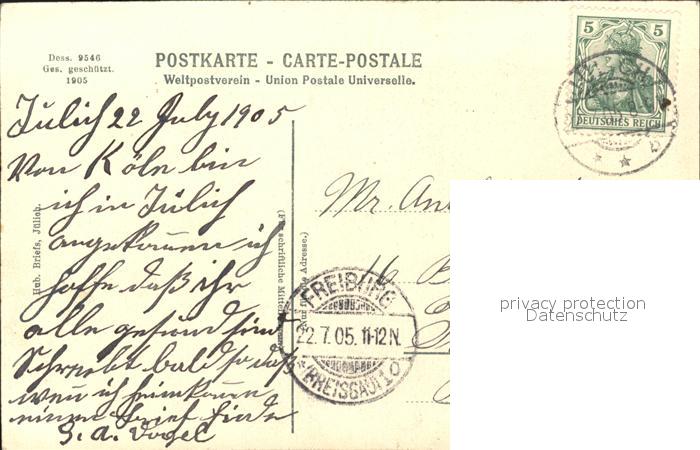 Dess. 9546
Ges. geschützt.
1905
POSTKARTE - CARTE-POSTALE
Weltpostverein - Union Postale Universelle.
5 5
DEUTSCHES REICH
Jülich 22 July 1905
Von Köln bin
ich in Jülich
angekommen ich
hoffe daß ihr
alle gesund sind
Schreibt bald so daß
wen ich heimkomme
einen Brief finde
G. A. Vogel
Hub. Briefs, Jülich.
(Für schriftliche
Adresse.)
Mr.
16
FREIBURG
22.7.05.11-12N.
(BREISGAU)
privacy protection
Datenschutz